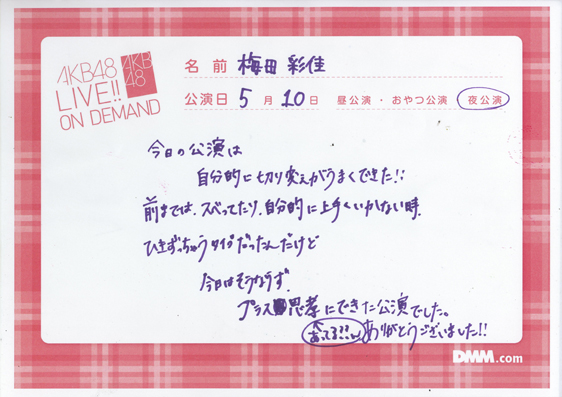 AKB48
LIVE!!
ON DEMAND
AKB
48
名前 梅田 彩佳
公演日 5月10日 昼公演・おやつ公演 夜公演
今日の公演は
自分的に切り変えがうまくできた!!
前までは、スベってたり、自分的に上手くいかない時、
ひきずっちゃうタイプだったんだけど
今日はそうならず、
プラス思孝にできた公演でした。
あってる??
ありがとうございました!!
DMM.com